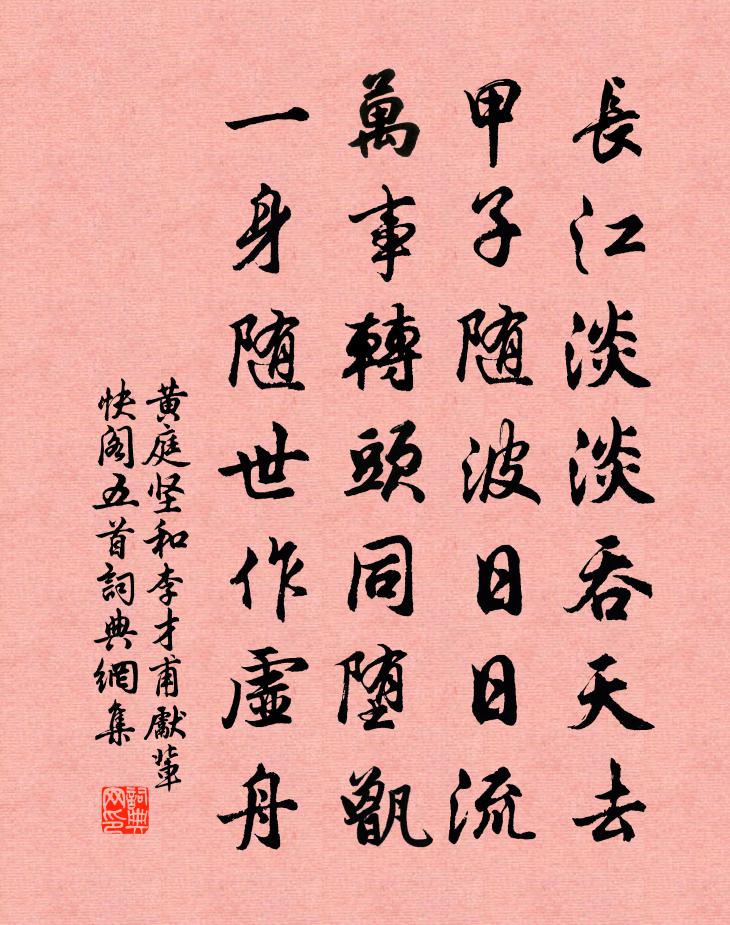 長江淡淡吞天去
甲子随波日日流
萬事轉頭同堕甑
一身随世作虛舟
黄庭坚和李才甫獻輩
快阁五首詞典網集
詞典
网印